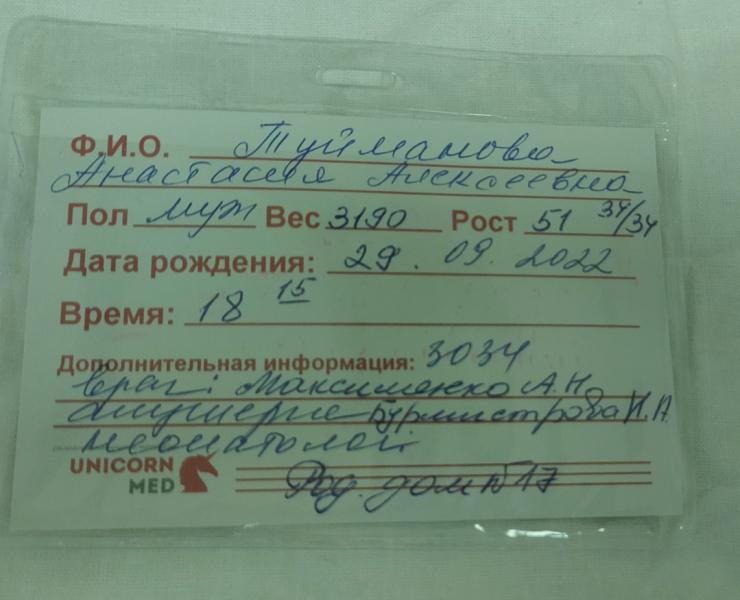 Ф.И.О. Туйманова
Анастасия Алексеевна
Пол муж Вес 3190 Рост 51 34/34
Дата рождения: 29.09.2022
Время: 18 15
Дополнительная информация: 3034
врач: Максименко А.Н.
акушерка Бурмистрова И.А.
неонатолог
UNICORN
MED
Род. дом №17